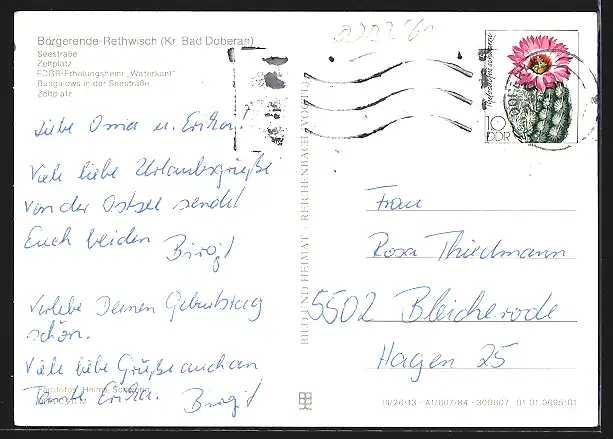 Börgerende-Rethwisch (Kr. Bad Doberan)
Seestraße
Zeltplatz
FDGB-Erholungsheim „Waterkant"
Bungalows in der Seestraße
Zeltplatz
Liebe Oma u. Erika.
Viele liebe Urlaubsgrüße
von der Ostsee sendet
Euch beiden Birgit
Verlebe Deinen Geburtstag
schön.
Viele liebe Grüße auch an
Tante Erika. Birgit
Farbfotos: Heims,
BILD UND HEIMAT · REICHENBACH (VOGTL.)
10
DDR
Frau
Rosa Thiedmann
5502 Bleicherode
Hagen 25
III/26/13 · A1/607/84 · 300607 01 01 0695/01